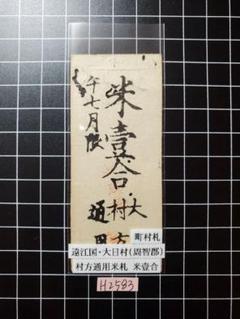 米壹合
午七月限
大
村方
通用
町村札
遠江国・大日村(周智郡)
村方通用米札 米壹合
H2583